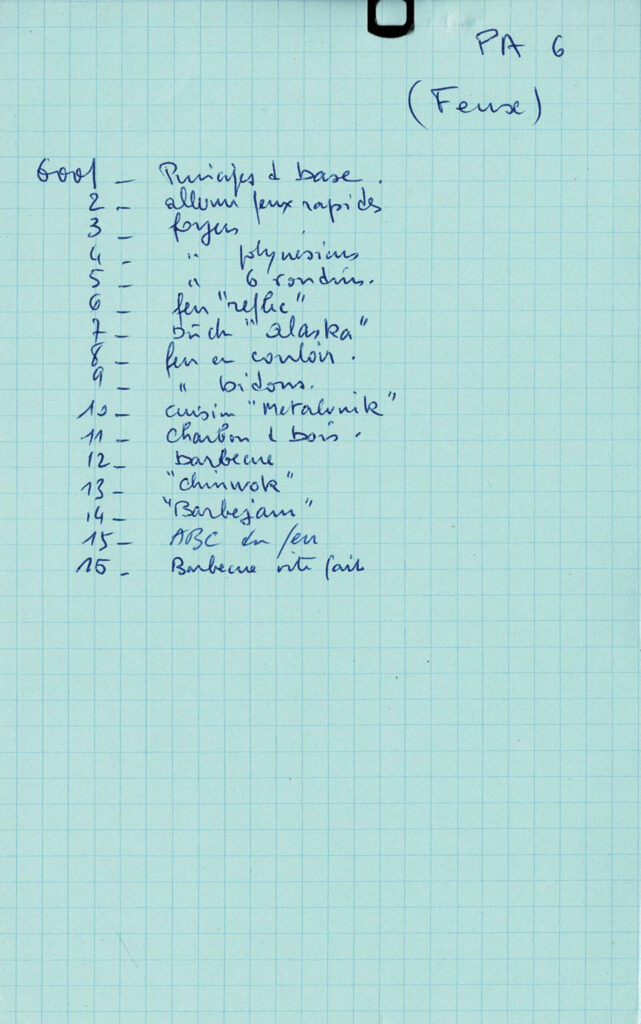 PA 6
(Feux)
6001 - Principes d base.
2 - allum feux rapides
3 - foyers
4 - " polynesiens
5 - " 6 rondins.
6 - feu "reflic"
7 - büch "alaska"
8 - feu en couloir.
9 - " bidons.
10 - cuisin "Metalunik"
11 - charbon d bois.
12 - barbecue
13 - "chinwok"
14 - "Barbejam"
15 - ABC du feu
16 - Barbecue vite fait